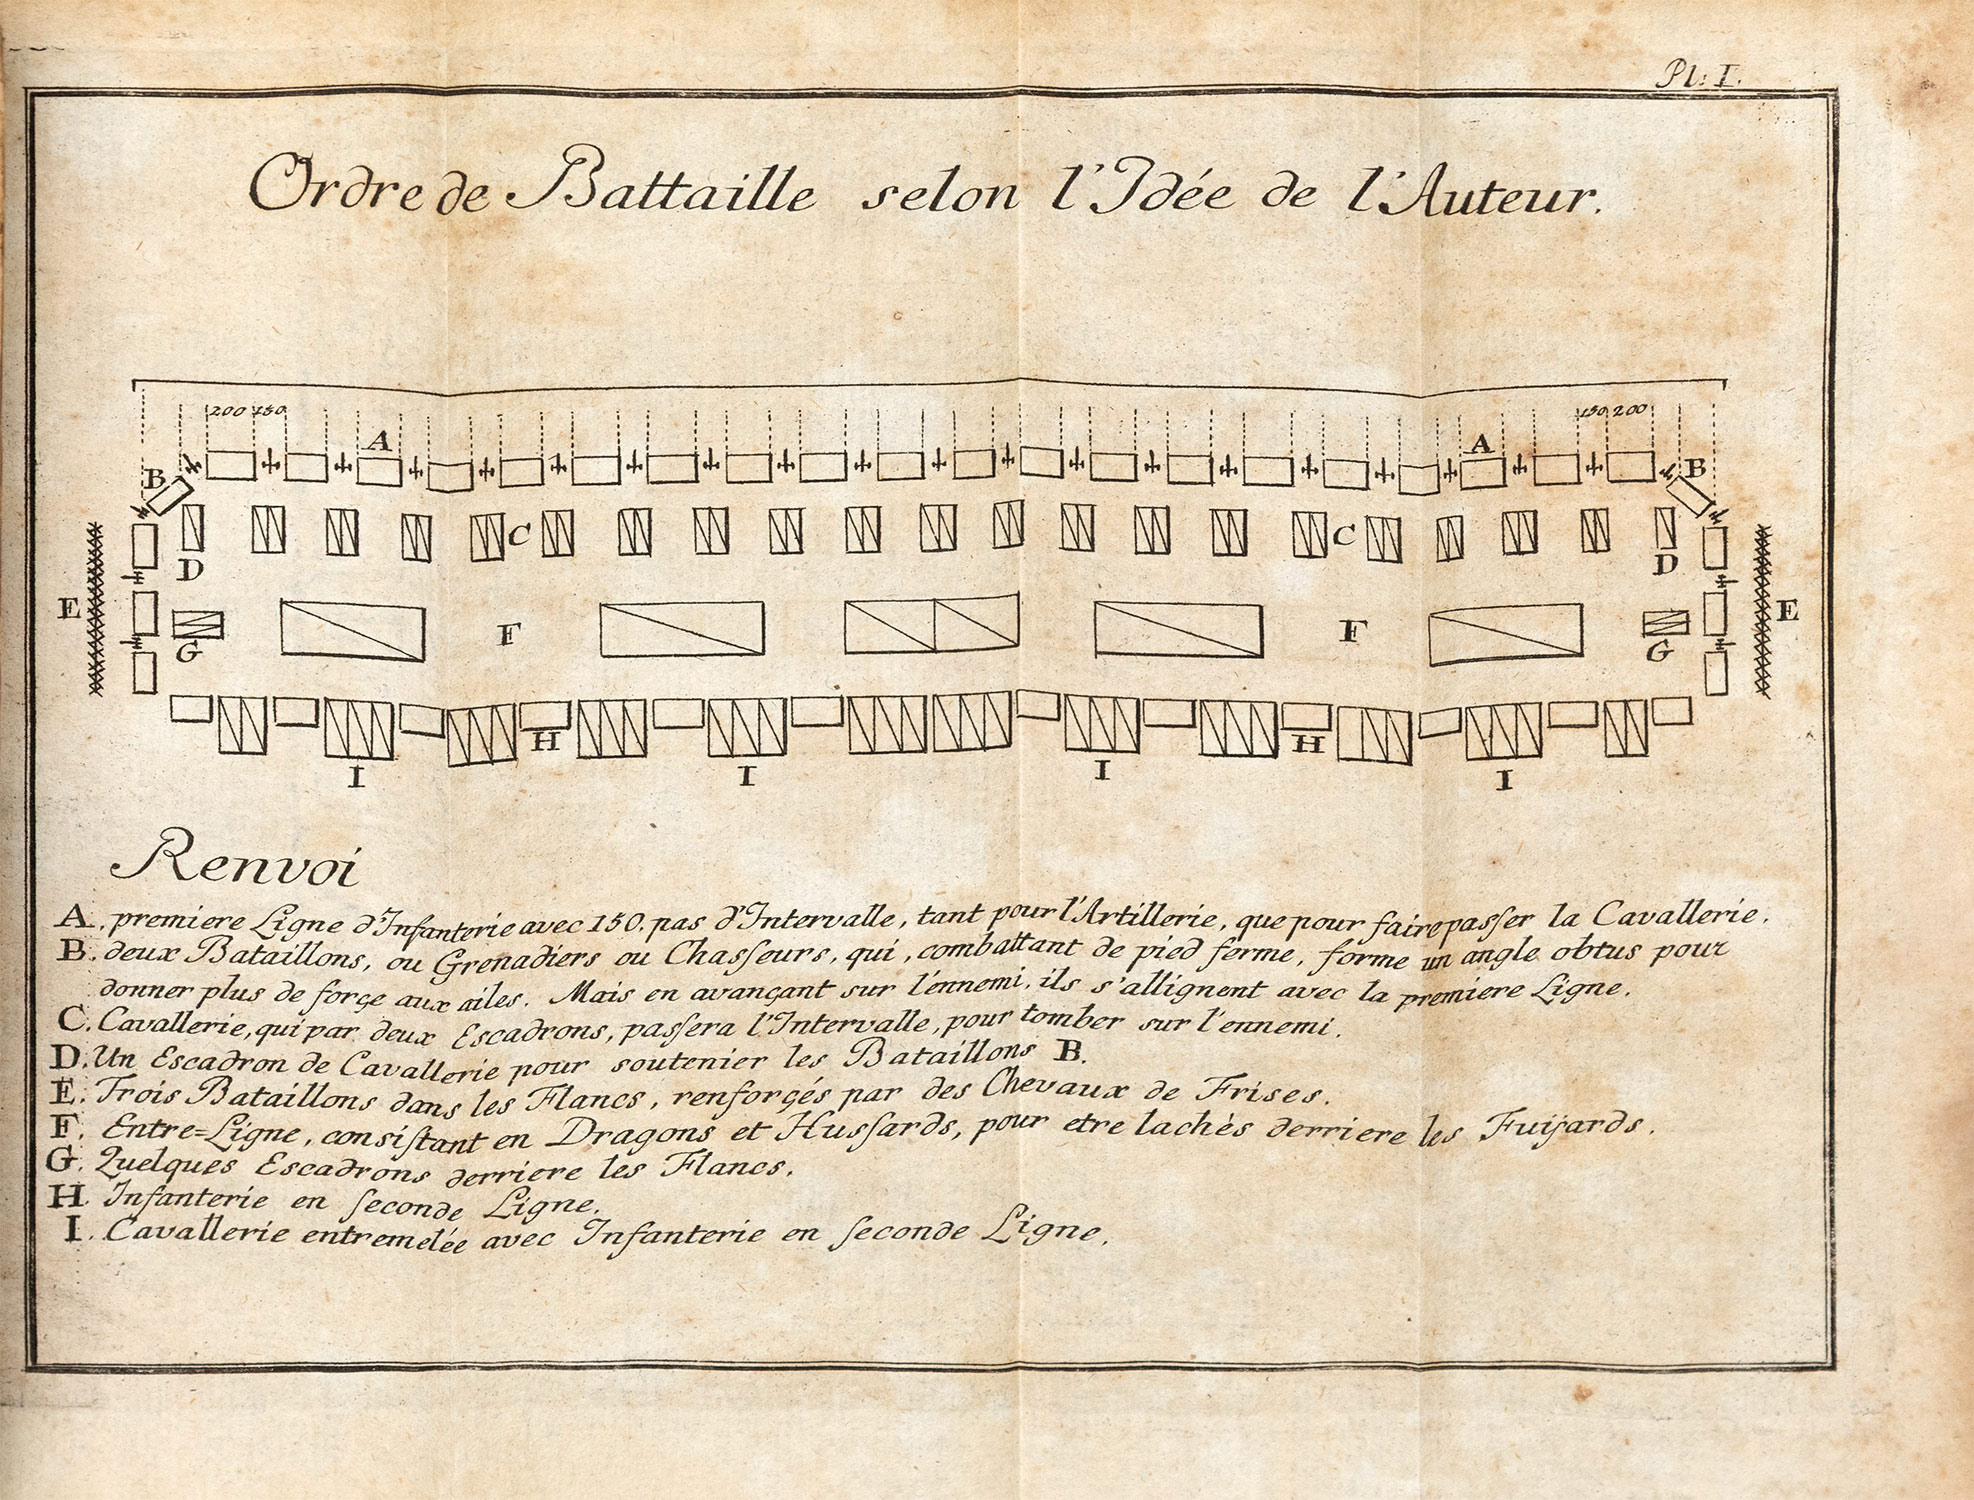 Pl: I.
Ordre de Battaille selon l'Idée de l'Auteur.
200 150 150 200
A A
B B
C C
D D
E E
F F
G G
H H
I I I I
Renvoi
A. premiere Ligne d'Infanterie avec 150. pas d'Intervalle, tant pour l'Artillerie, que pour faire passer la Cavallerie.
B. deux Bataillons, ou Grenadiers ou Chasseurs, qui, combattant de pied ferme, forme un angle obtus pour
donner plus de forçe aux ailes. Mais en avançant sur l'énnemi, ils s'allignent avec la premiere Ligne.
C. Cavallerie, qui par deux Escadrons, passera l'Intervalle, pour tomber sur l'ennemi.
D. Un Escadron de Cavallerie pour soutenier les Bataillons B.
E. Trois Bataillons dans les Flancs, renforçés par des Chevaux de Frises.
F. Entre=Ligne, consistant en Dragons et Hussards, pour etre lachès derriere les Fuijards.
G. Quelques Escadrons derriere les Flancs.
H. Infanterie en seconde Ligne.
I. Cavallerie entremelée avec Infanterie en seconde Ligne.